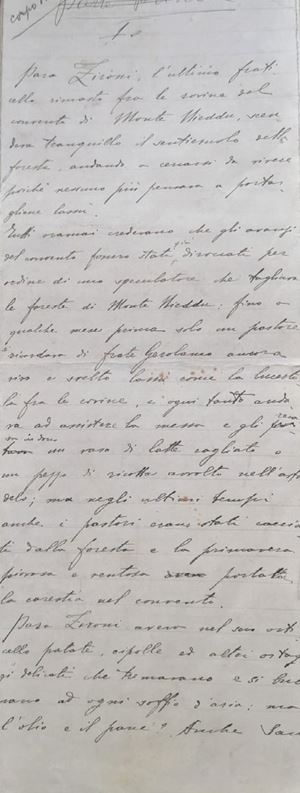 capo
1º
Para Zironi, l'ultimo frati
cello rimasto fra le rovine del
convento di Monte Nieddu, scen
deva tranquillo il sentieruolo della
foresta, andando a cercarsi da vivere
poiché nessuno più pensava a porta
gliene lassù.
Tutti oramai credevano che gli avanzi
del convento fossero stati diroccati per
ordine di uno speculatore che tagliava
le foreste di Monte Nieddu; fino a
qualche mese prima solo un pastore
si ricordava di frate Gerolamo ancora
vivo e svelto lassù come la lucerto
la fra le rovine, e ogni tanto anda
va ad assistere la messa e gli
un vaso di latte cagliato o
un pezzo di ricotta avvolto nell'asfo
delo; ma negli ultimi tempi
anche i pastori erano stati caccia
ti dalla foresta e la primavera
piovosa e ventosa portato
la carestia nel convento.
Para Zironi aveva nel suo orti
cello patate, cipolle ed altri ortag
gi delicati che tremavano e si
vano ad ogni soffio d'aria; ma
l'olio e il pane? Anche